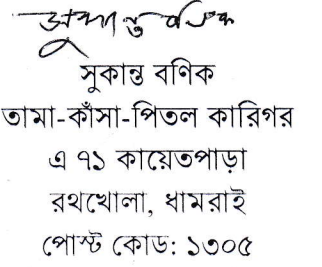 সুকান্ত বণিক
সুকান্ত বণিক
তামা-কাঁসা-পিতল কারিগর
এ ৭১ কায়েতপাড়া
রথখোলা, ধামরাই
পোস্ট কোড: ১৩০৫